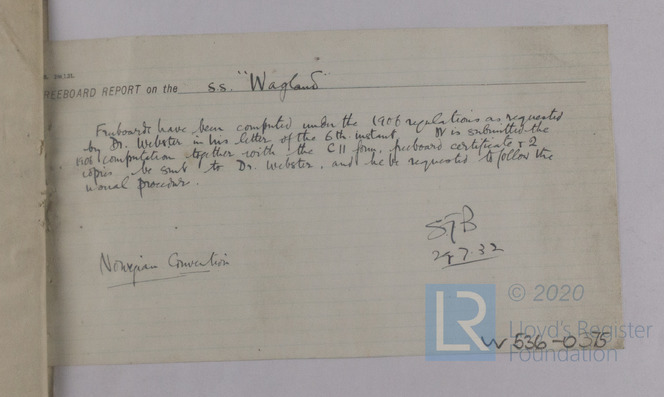 REEBOARD REPORT on the S.S. "Wagland"
Freeboards have been computed under the 1906 regulations as requested
by Dr. Webster in his letter of the 6th instant. It is submitted the
1906 computation together with the C11 form, freeboard certificate & 2
copies be sent to Dr. Webster, and he be requested to follow the
usual procedure.
Norwegian Convention
29.7.32
© 2020
LR
Lloyd's Register
Foundation
W536-0375